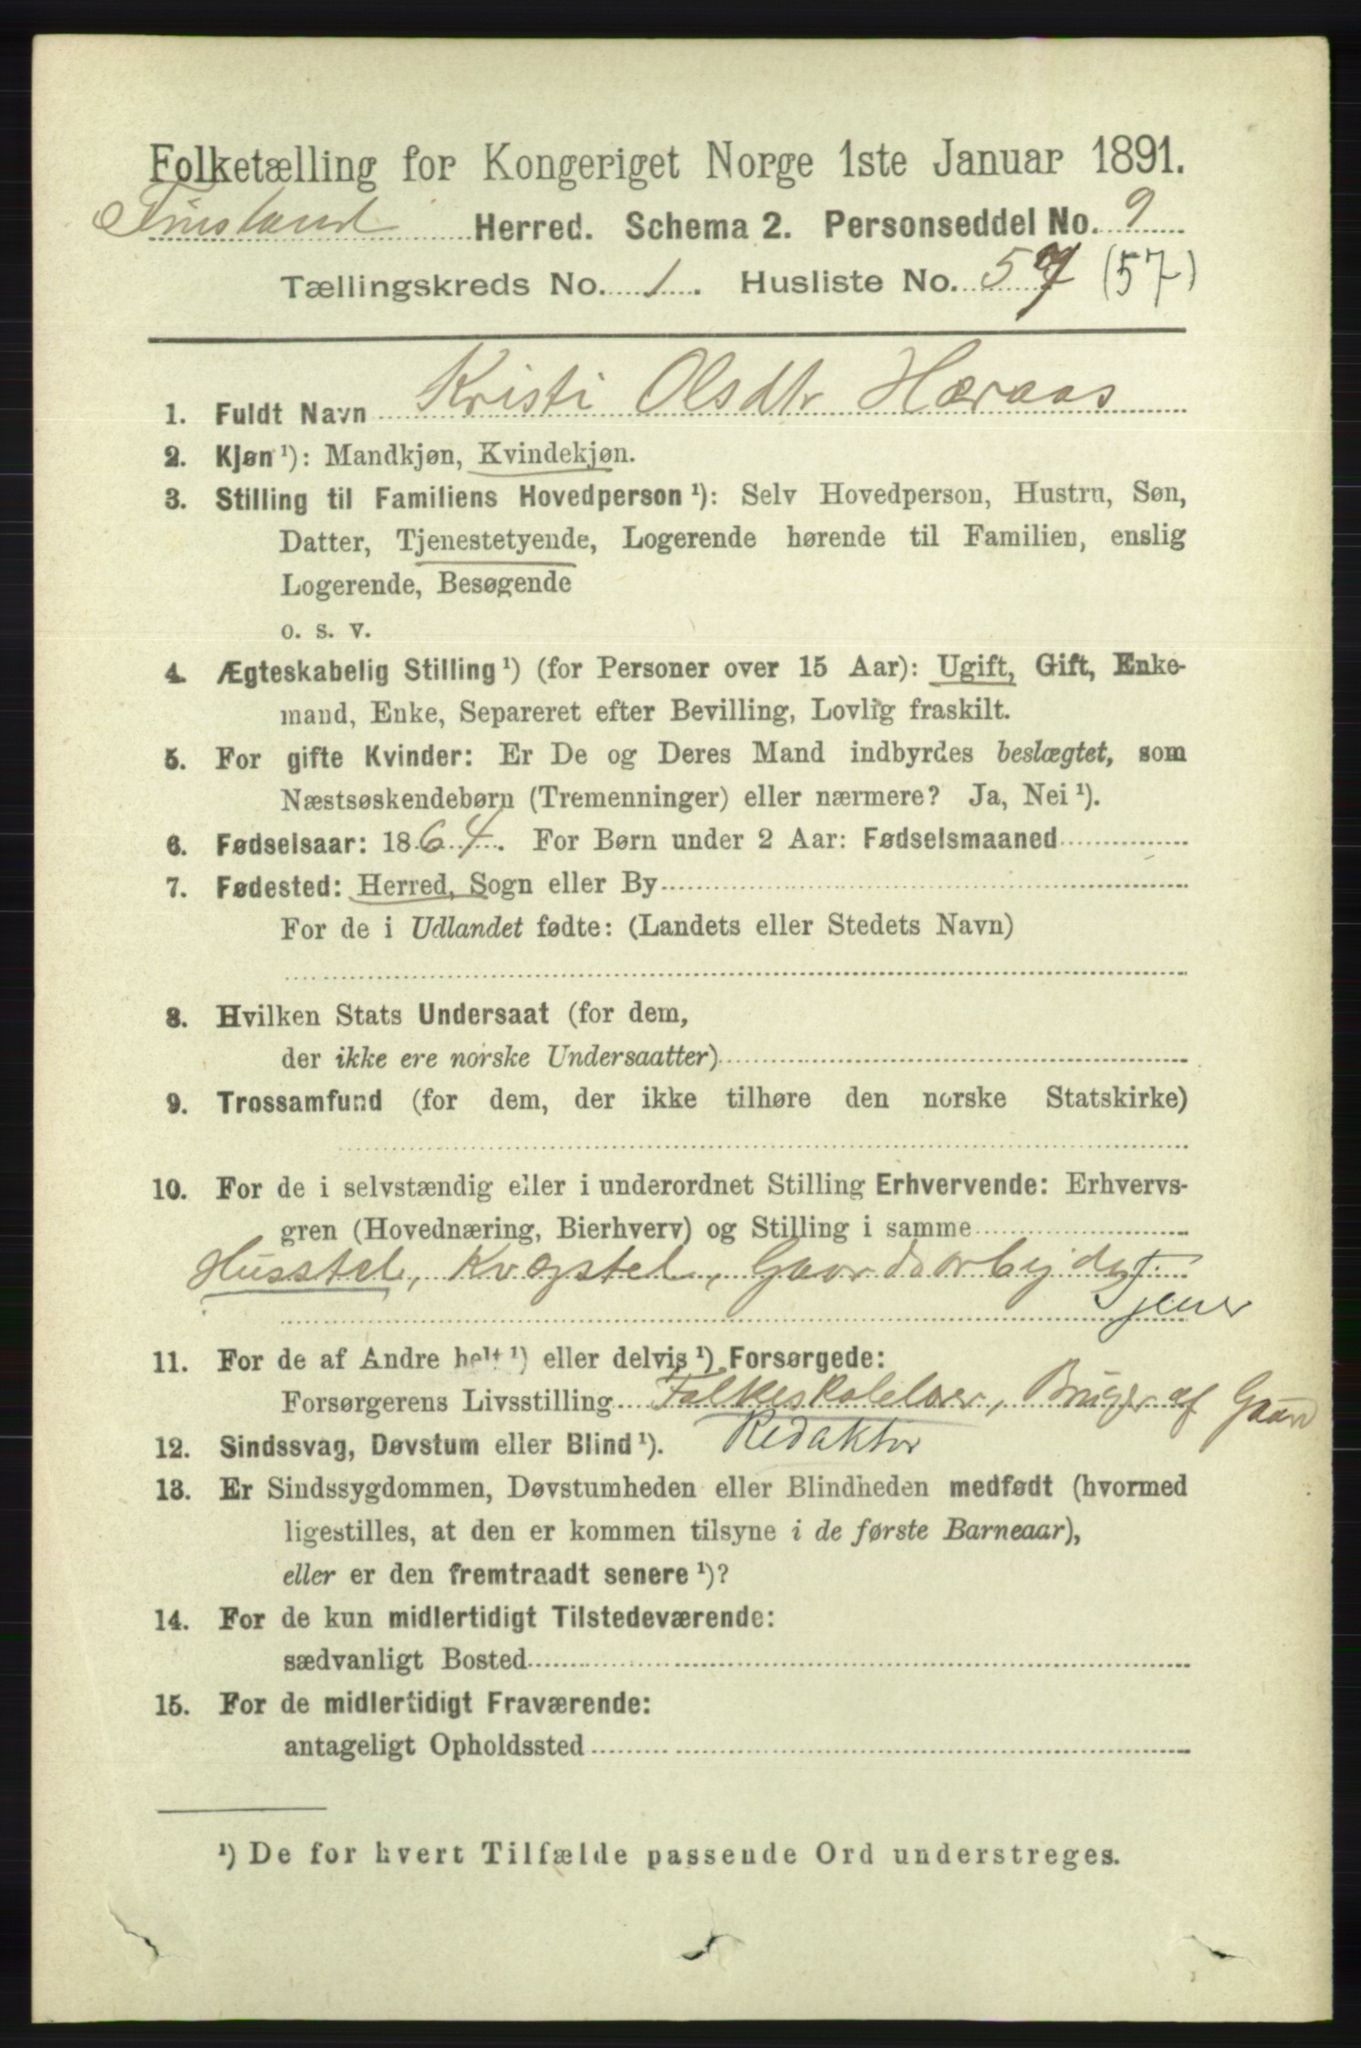 Folketælling for Kongeriget Norge 1ste Januar 1891.
Finsland Herred. Schema 2. Personseddel No. 9
Tællingskreds No. 1. Husliste No. 57 (57)
1. Fuldt Navn Kristi Olsdtr Høraas
2. Kjøn¹): Mandkjøn, Kvindekjøn.
3. Stilling til Familiens Hovedperson¹): Selv Hovedperson, Hustru, Søn,
Datter, Tjenestetyende, Logerende hørende til Familien, enslig
Logerende, Besøgende
o. s. v.
4. Ægteskabelig Stilling¹) (for Personer over 15 Aar): Ugift, Gift, Enke-
mand, Enke, Separeret efter Bevilling, Lovlig fraskilt.
5. For gifte Kvinder: Er De og Deres Mand indbyrdes beslægtet, som
Næstsøskendebørn (Tremenninger) eller nærmere? Ja, Nei¹).
6. Fødselsaar: 1864. For Børn under 2 Aar: Fødselsmaaned
7. Fødested: Herred, Sogn eller By
For de i Udlandet fødte: (Landets eller Stedets Navn)
8. Hvilken Stats Undersaat (for dem,
der ikke ere norske Undersaatter)
9. Trossamfund (for dem, der ikke tilhøre den norske Statskirke)
10. For de i selvstændig eller i underordnet Stilling Erhvervende: Erhvervs-
gren (Hovednæring, Bierhverv) og Stilling i samme
Husstel, Kvægstel, Gaardsarbejde
Tjener
11. For de af Andre helt¹) eller delvis¹) Forsørgede:
Forsørgerens Livsstilling Folkeskolelær, Bruger af Gaard
Redaktør
12. Sindssvag, Døvstum eller Blind¹).
13. Er Sindssygdommen, Døvstumheden eller Blindheden medfødt (hvormed
ligestilles, at den er kommen tilsyne i de første Barneaar),
eller er den fremtraadt senere¹)?
14. For de kun midlertidigt Tilstedeværende:
sædvanligt Bosted
15. For de midlertidigt Fraværende:
antageligt Opholdssted
¹) De for hvert Tilfælde passende Ord understreges.